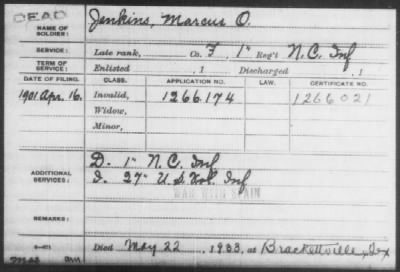 DEAD
NAME OF SOLDIER: Jenkins, Marcus O.
SERVICE: Late rank, Co. F 1" Reg't N.C. Inf
TERM OF SERVICE: Enlisted , 1 Discharged , 1
DATE OF FILING. CLASS. APPLICATION NO. LAW. CERTIFICATE NO.
1901 Apr. 16. Invalid, 1266174 1266021
Widow,
Minor,
ADDITIONAL SERVICES: D. 1" N.C. Inf
I. 27" U.S. Vol. Inf
WAR WITH SPAIN
REMARKS:
Died May 22, 1933, at Brackettville, Tex